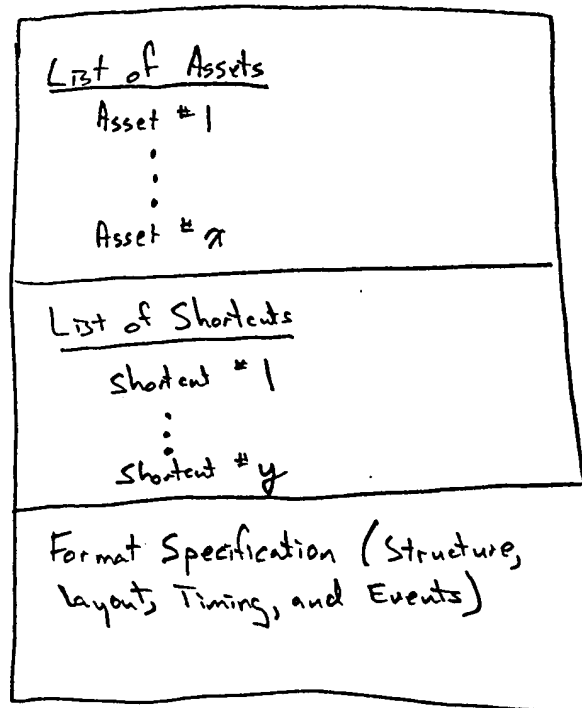 List of Assets
Asset #1
Asset #x
List of Shortcuts
Shortcut #1
Shortcut #y
Format Specification (Structure,
Layout, Timing, and Events)